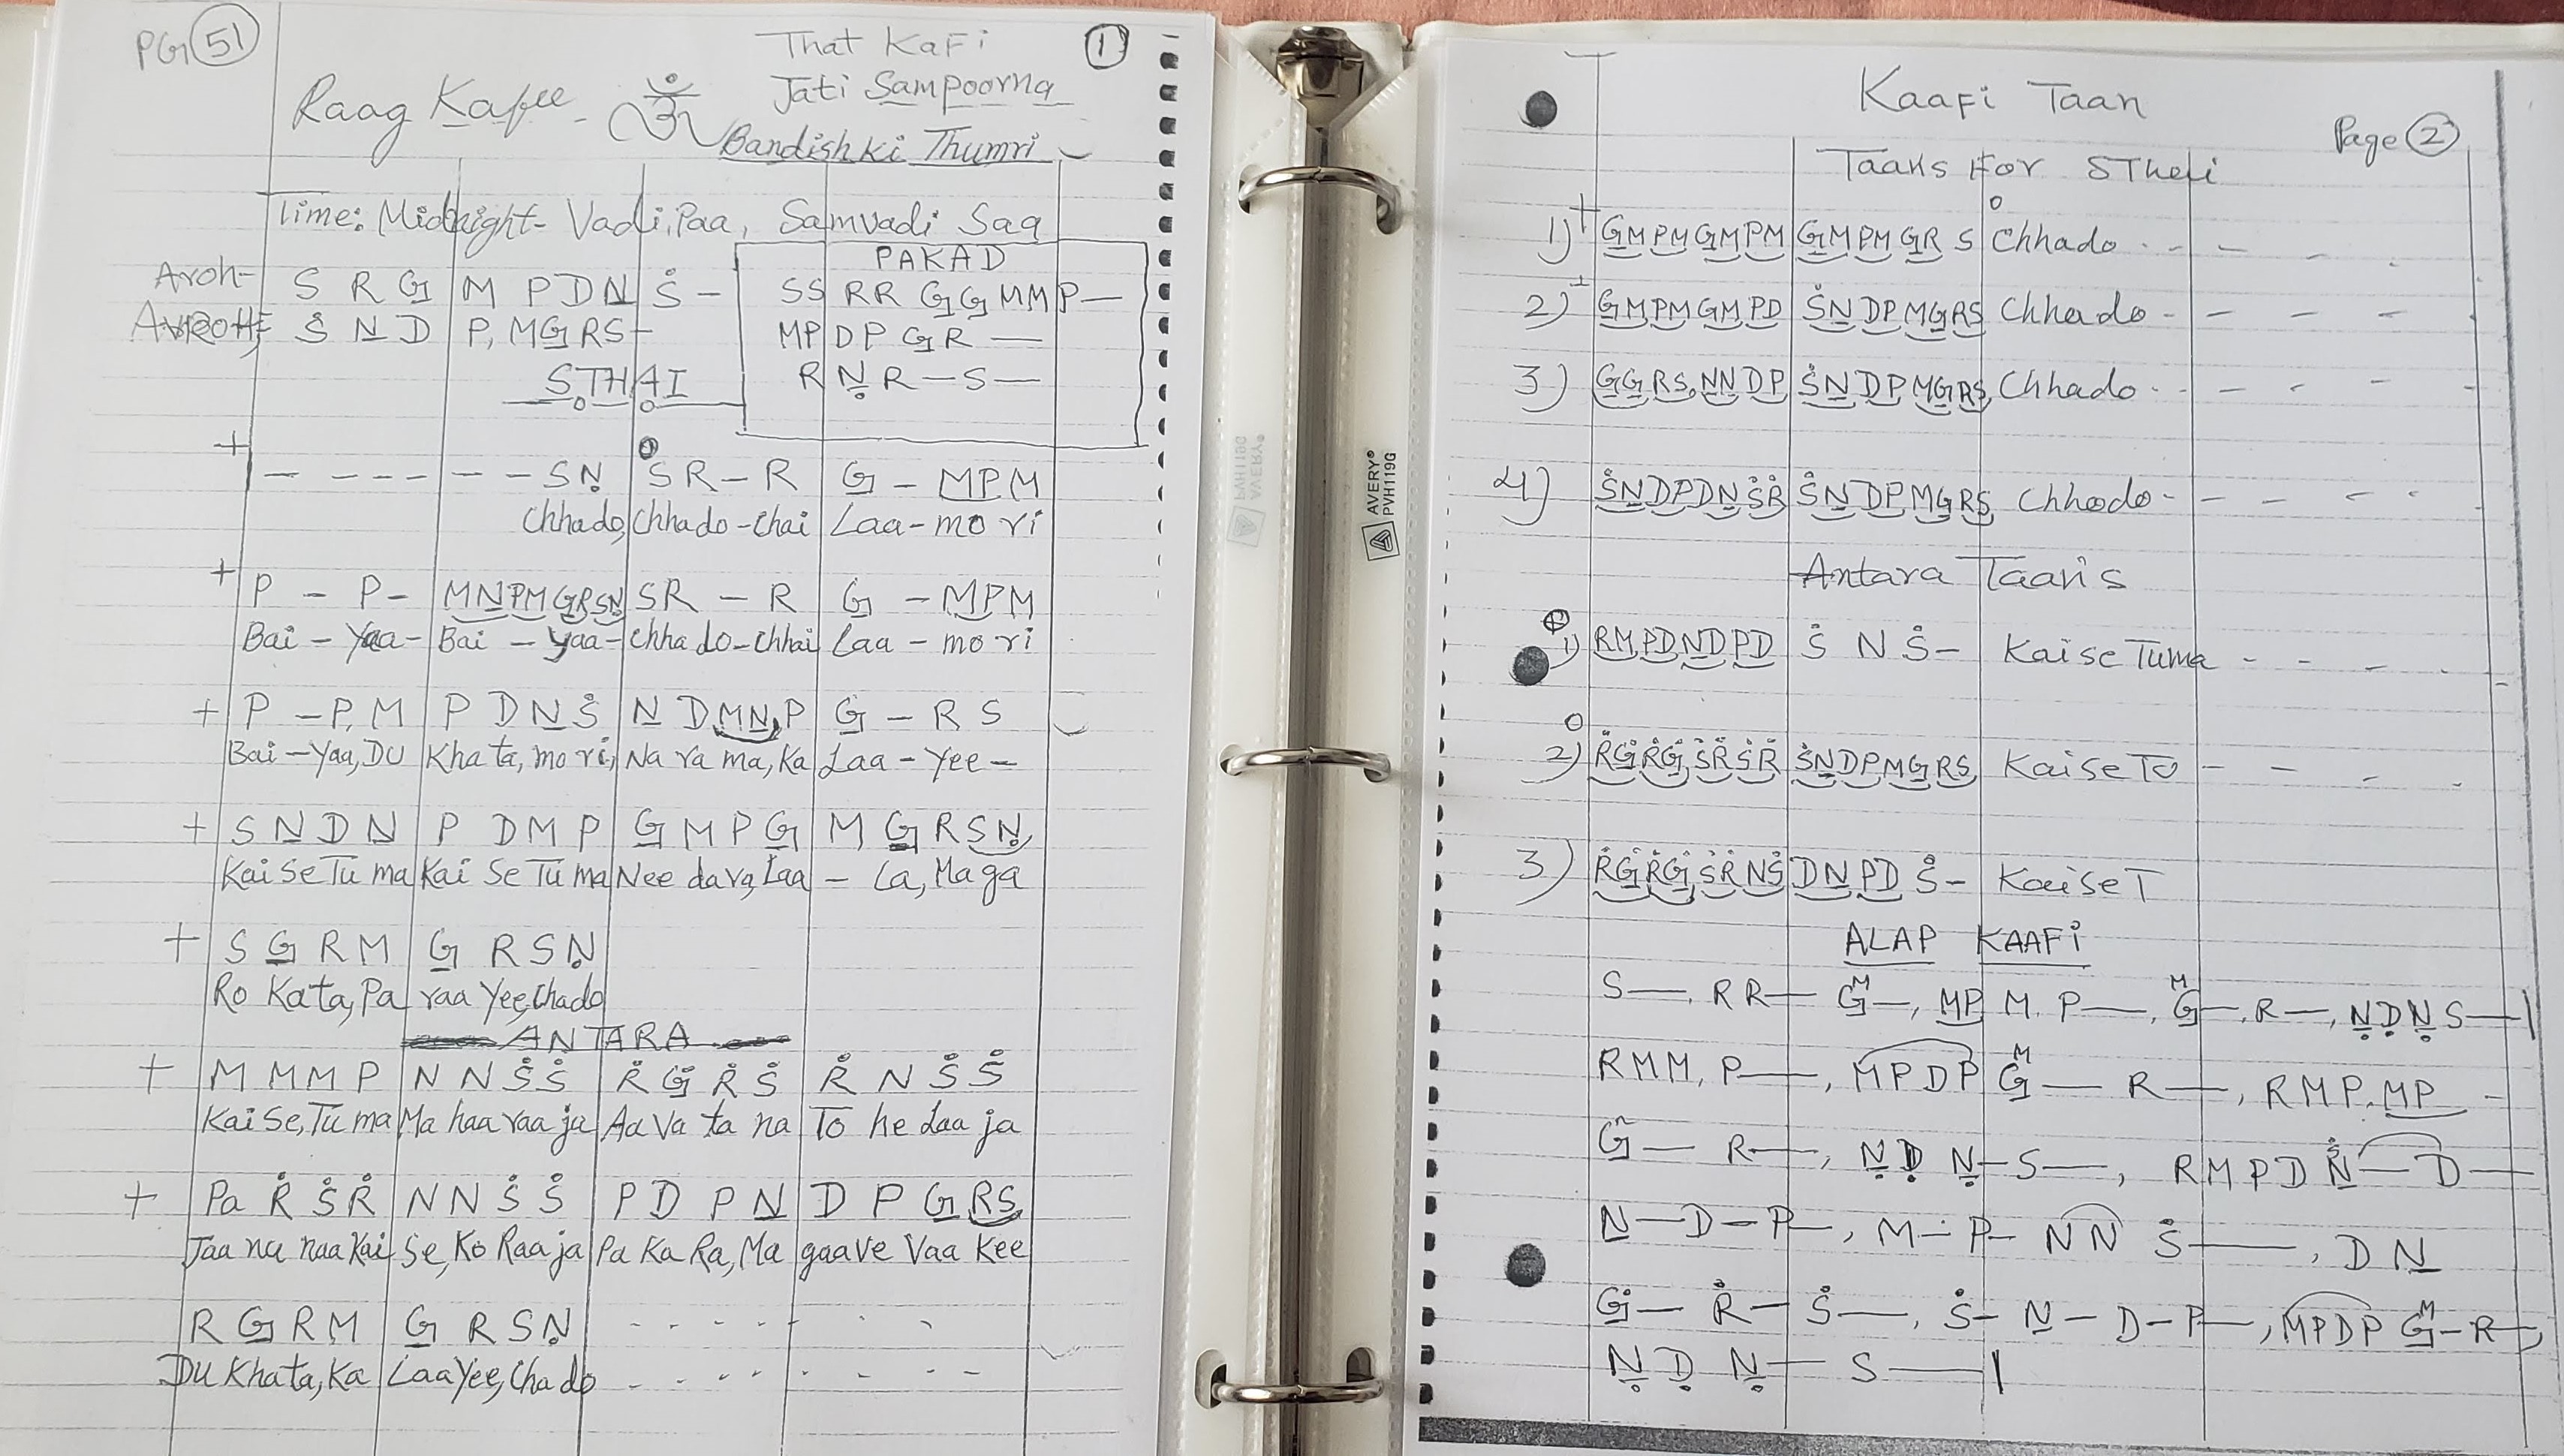 PG 51
That Kafi
1
Raag Kafee - ॐ
Jati Sampoorna
Bandish ki Thumri
Time: Midnight - Vadi, Paa, Samvadi Saa
PAKAD
SS RR G̲G̲ MM P—
MP DP G̲R —
R Ṇ̲ R — S —
Aroh - S R G̲ M P D N̲ Ṡ -
AVROH: Ṡ N̲ D P, M G̲ R S -
STHAI
+ - - - - - - S Ṇ S R - R G̲ - MP M
Chhado, Chhado - Chai Laa - mo ri
+ P - P - MN̲ PM G̲R SṆ SR - R G̲ - MP M
Bai - Yaa - Bai - yaa - Chha do - Chhai Laa - mo ri
+ P - P, M P D N̲ Ṡ N̲ D MN̲, P G̲ - R S
Bai - Yaa, DU Kha ta, mo ri, Na ra ma, Ka Laa - Yee -
+ S N̲ D N̲ P D M P G̲ M P G̲ M G̲ R SṆ
Kai Se Tu ma Kai Se Tu ma Nee dara, Laa - La, Ma ga
+ S G̲ R M G̲ R S Ṇ
Ro Kata, Pa raa Yee, Chado
ANTARA
+ M M M P N N Ṡ Ṡ Ṙ Ġ̲ Ṙ Ṡ Ṙ N Ṡ Ṡ
Kai Se, Tu ma Ma haa raa ja Aa Va ta na To he Laa ja
+ Pa Ṙ Ṡ Ṙ N N Ṡ Ṡ P D P N̲ D P G̲ RS
Jaa na naa Kai Se, Ko Raa ja Pa Ka Ra, Ma gaa ve Vaa Kee
R G̲ R M G̲ R S Ṇ - - - - - - -
DU Khata, Ka Laa Yee, Cha do - - - - - - - -
AVERY®
PVH119G
Kaafi Taan
Page 2
Taans For SThai
o
1) + G̲M PM G̲M PM G̲M PM G̲R S Chhado - - - - -
2) G̲M PM G̲M PD ṠN̲ DP MG̲ RS Chhado - - - - -
3) G̲G̲ RS, N̲N̲ DP ṠN̲ DP MG̲ RS, Chhado - - - - -
4) ṠN̲ DP DN̲ ṠṘ ṠN̲ DP MG̲ RS, Chhodo - - - - -
Antara Taans
1) RM PD N̲D PD Ṡ N Ṡ - Kai se Tuma - - - -
o
2) ṘĠ̲ ṘĠ̲, ṠṘ ṠṘ ṠN̲ DP MG̲ RS Kai se To - - - -
3) ṘĠ̲ ṘĠ̲, ṠṘ NṠ DN̲ PD Ṡ - Kai se T
ALAP KAAFI
S —, R R — ᴹG̲ —, MP M P —, ᴹG̲ —, R —, Ṇ̲ Ḍ Ṇ̲ S —|
R M M, P —, MPDP ᴹG̲ — R —, R M P, MP -
G̲ — R —, Ṇ̲ Ḍ Ṇ̲ - S —, R M P D ˢN̲ — D —
N̲ — D - P —, M - P - N N Ṡ —, D N̲
Ġ̲ — Ṙ — Ṡ —, Ṡ - N̲ - D - P —, MPDP ᴹG̲ - R -,
Ṇ̲ Ḍ Ṇ̲ — S —|